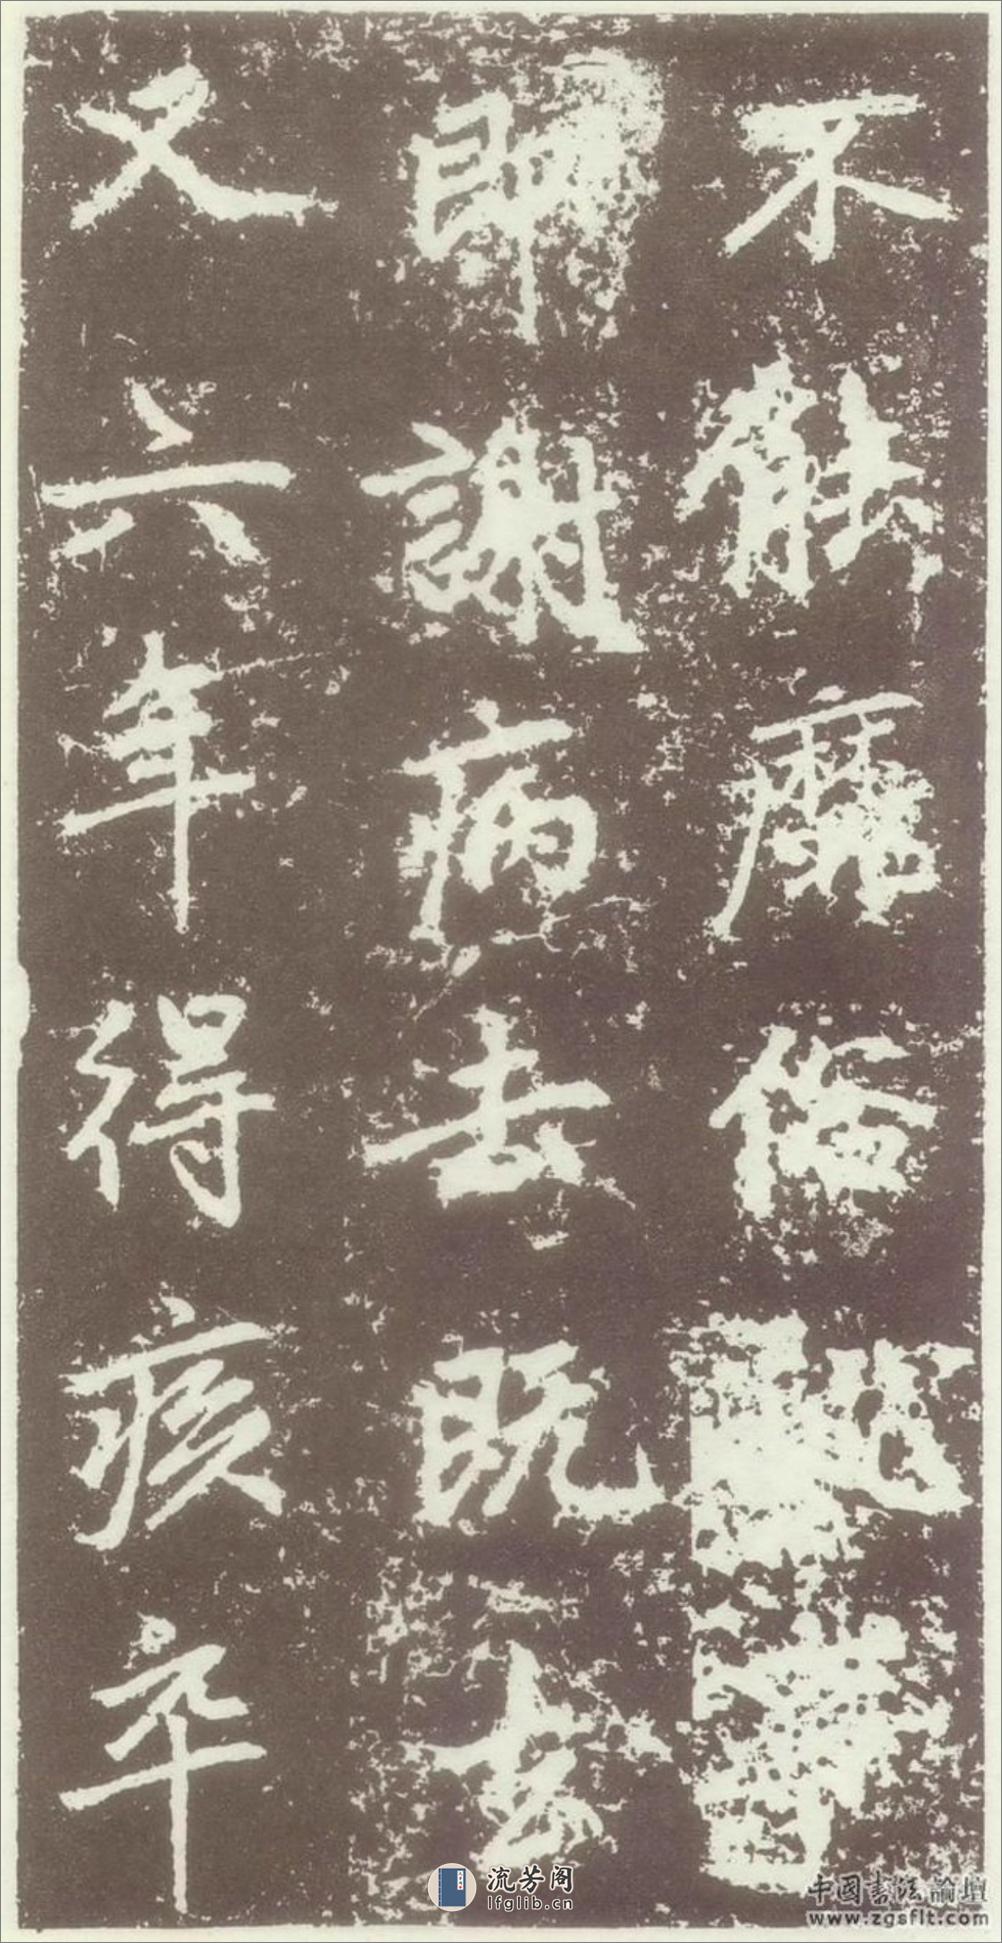 不能靡俗
即謝病去既去
又六年得痎卒
流芳阁
lfglib.cn
中國書法論壇
www.zgsflt.com